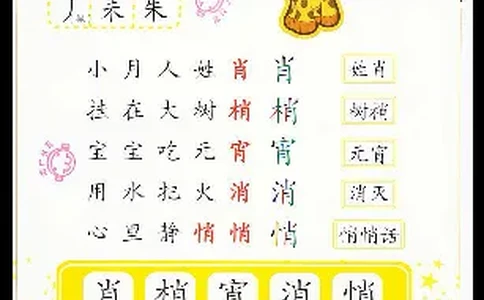 朱
小月人姓肖 肖 姓肖
挂在大树梢 梢 树梢
宝宝吃元宵 宵 元宵
用水把火消 消 消灭
心里静悄悄 悄 悄悄话
肖 梢 宵 消 悄